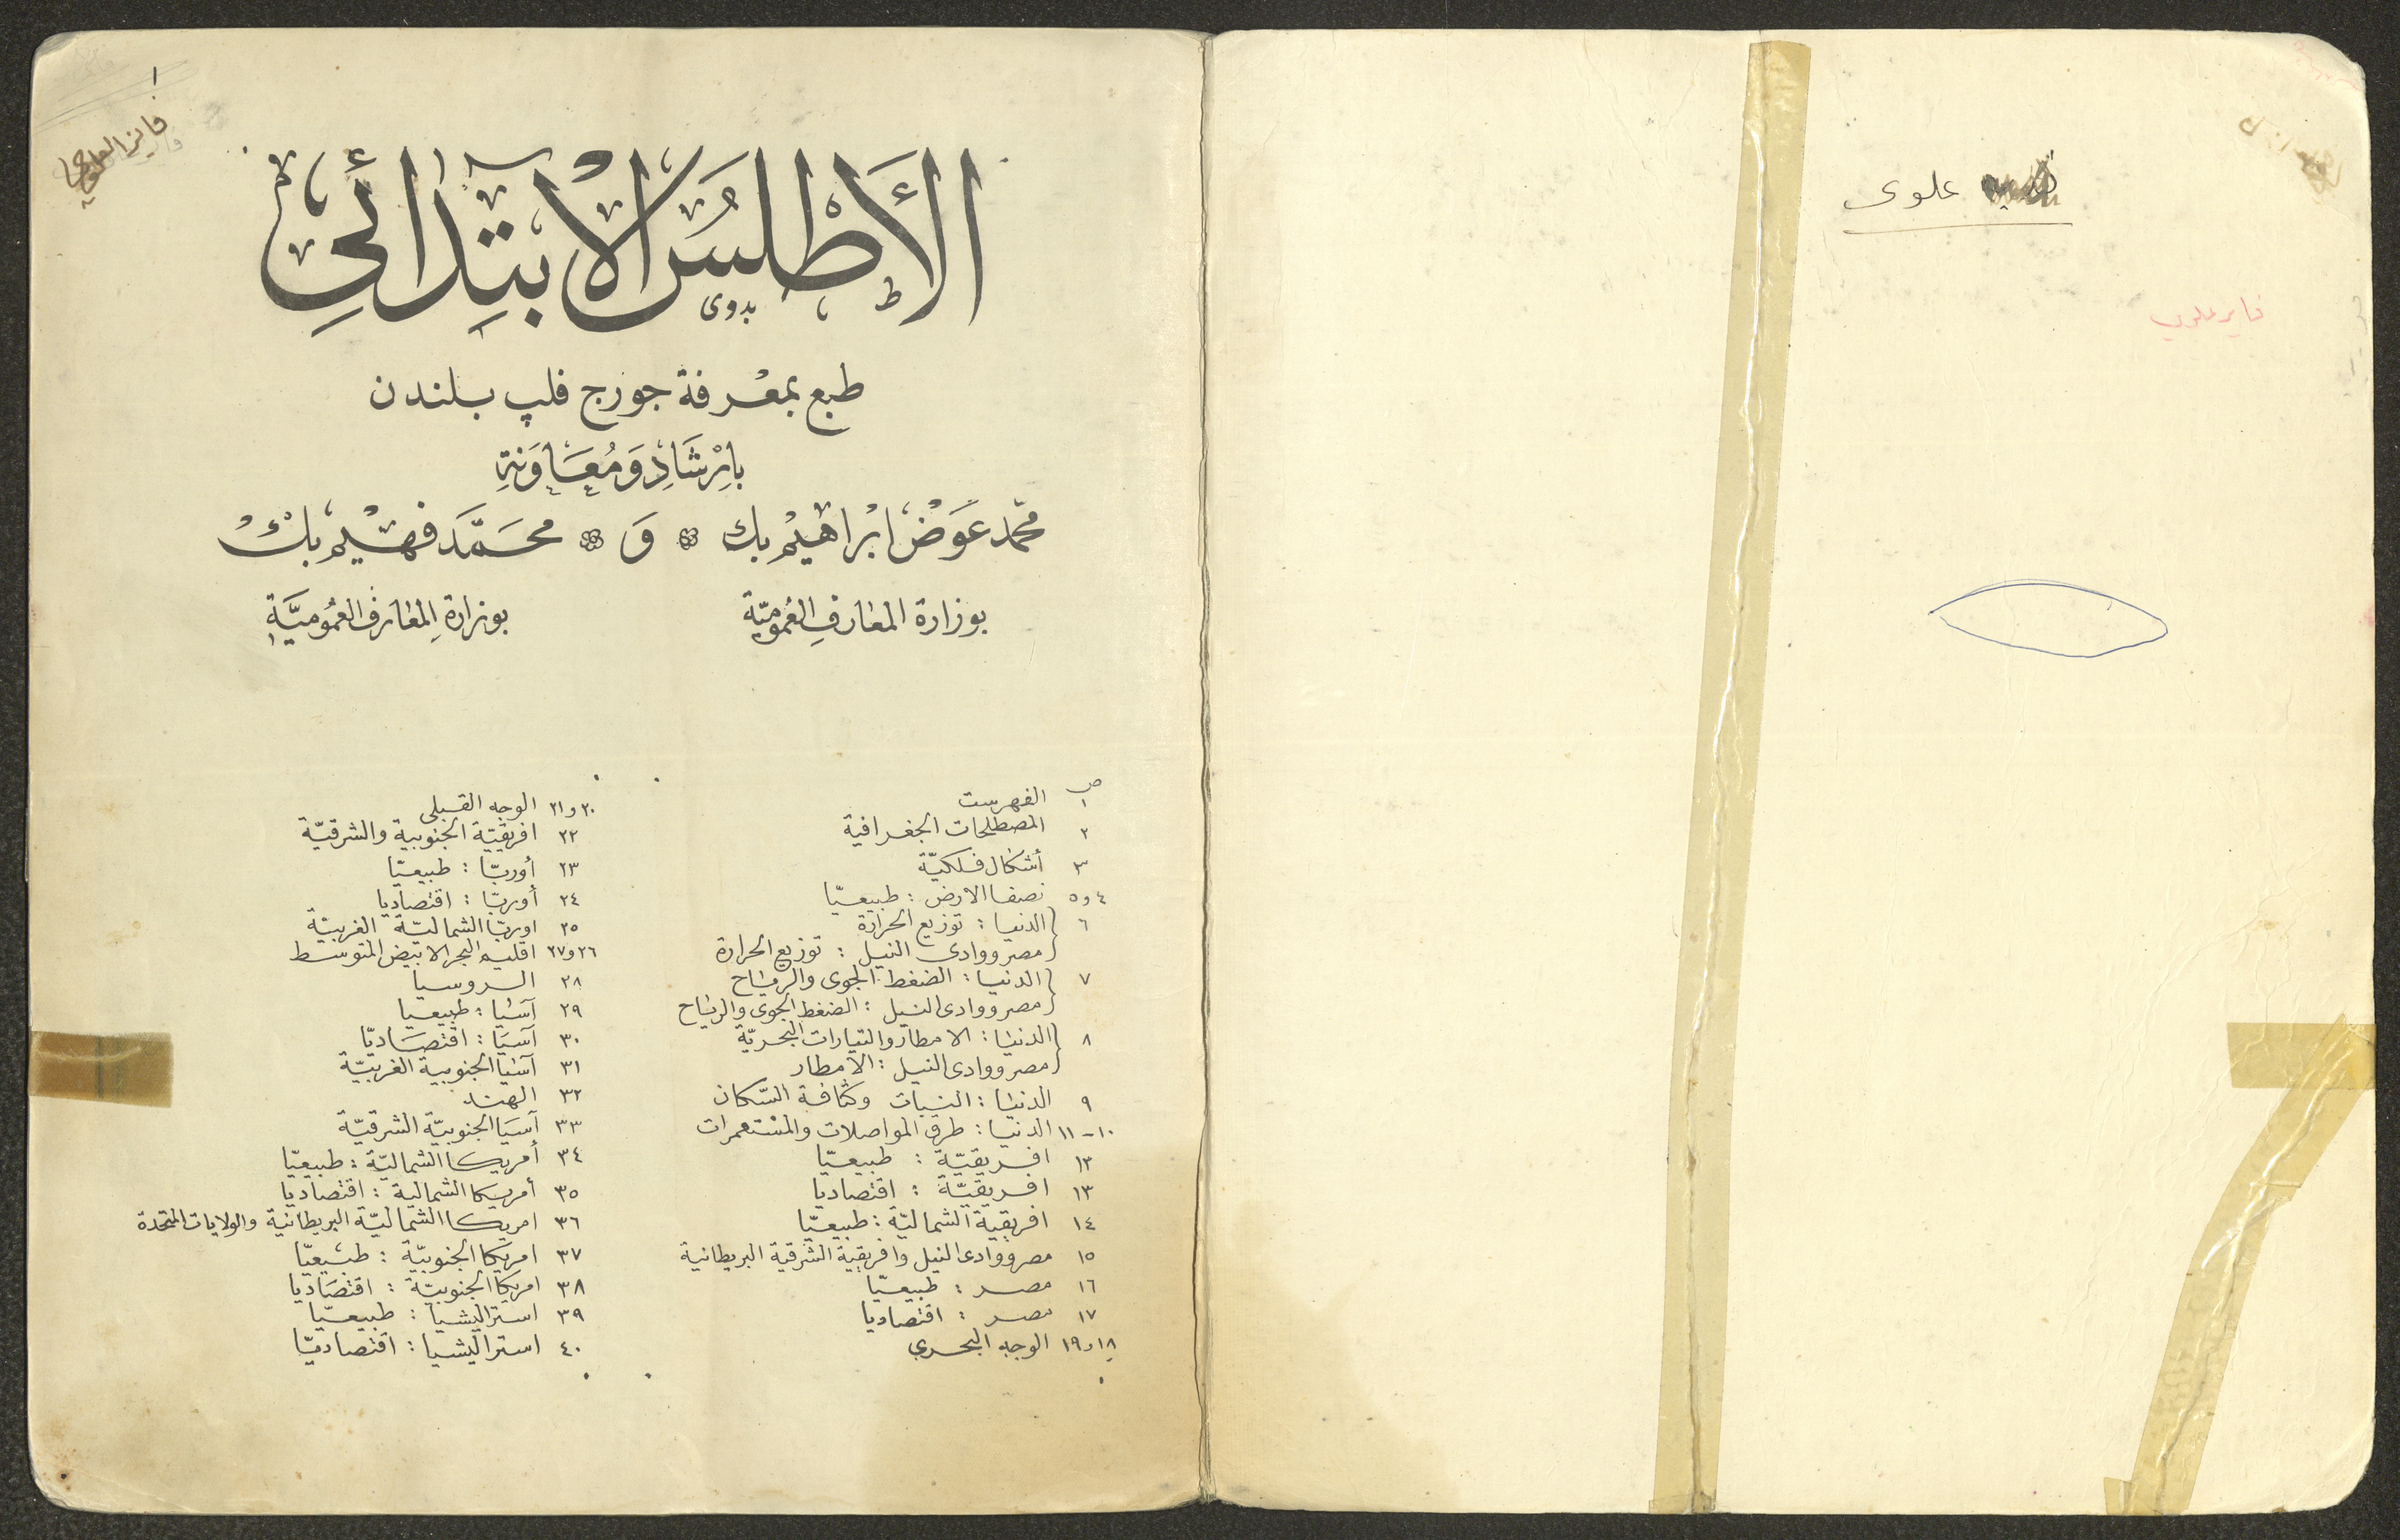 علوى
فايز علوي
١
فايز العلوجي
الأَطْلَسُ الابتِدائىِ
بدوى
طبع بمعرفة جورج فلپ بلندن
بإرْشَادِ وَمُعَاوَنةِ
محمّد عَوَضْ ابْراهيْم بك وَ محَمَّد فَهْيمْ بكْ
بوزارة المعارفِ العُموميّة بوزارةِ المعارفِ العُموميَّةِ
ص
١ الفهرست
٢ المصطلحات الجغرافية
٣ أشكال فلكيّة
٤ و ٥ نصفا الارض : طبيعيّا
٦ الدنيا : توزيع الحرارة
مصر ووادى النيل : توزيع الحرارة
٧ الدنيا : الضغط الجوى والرياح
مصر ووادى النيل : الضغط الجوى والرياح
٨ الدنيا : الامطار والتيارات البحريّة
مصر ووادى النيل : الامطار
٩ الدنيا : النبات وكثافة السّكان
١٠-١١ الدنيا : طرق المواصلات والمستعمرات
١٢ افريقيّة : طبيعيّا
١٣ افريقيّة : اقتصاديا
١٤ افريقية الشماليّة : طبيعيّا
١٥ مصر ووادى النيل وافريقية الشرقية البريطانية
١٦ مصر : طبيعيّا
١٧ مصر : اقتصاديا
١٨ و ١٩ الوجه البحري
٢٠ و ٢١ الوجه القبلى
٢٢ افريقيّة الجنوبية والشرقيّة
٢٣ أوربّا : طبيعيّا
٢٤ أوربّا : اقتصاديا
٢٥ اوربّا الشماليّة الغربيّة
٢٦ و ٢٧ اقليم البحر الابيض المتوسط
٢٨ الروسيا
٢٩ آسيا : طبيعيا
٣٠ آسيَا : اقتصَاديّا
٣١ آسيا الجنوبية الغربيّة
٣٢ الهند
٣٣ آسيَا الجنوبيّة الشرقيّة
٣٤ أمريكا الشماليّة : طبيعيّا
٣٥ أمريكا الشمالية : اقتصاديا
٣٦ امريكا الشماليّة البريطانية والولايات المتحدة
٣٧ امريكا الجنوبيّة : طبيعيّا
٣٨ امريكا الجنوبيّة : اقتصَاديا
٣٩ استراليشيا : طبيعيّا
٤٠ استراليشيا : اقتصاديّا